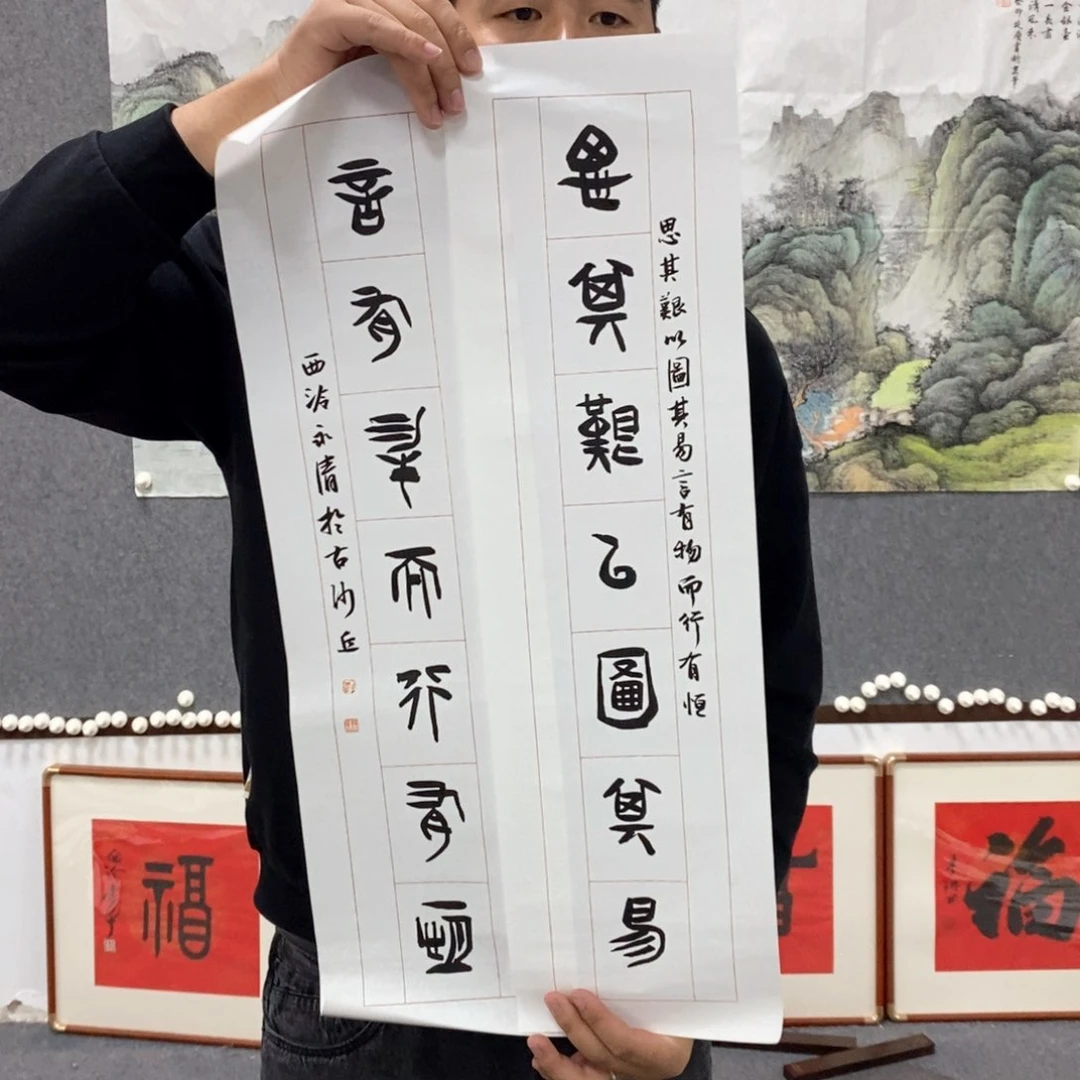 思其艱以圖其易言有物而行有恒
思其艱㠯圖其易
言有物而行有恆
西泠永清於古沙丘
福
福